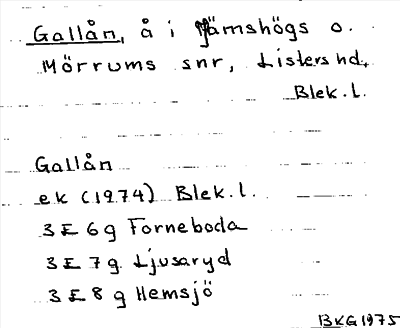 Gallån, å i Jämshögs o.
Mörrums snr, Listers hd,
Blek. l.
Gallån
ek (1974) Blek. l.
3E 6g Forneboda
3E 7g Ljusaryd
3E 8g Hemsjö
BKG 1975